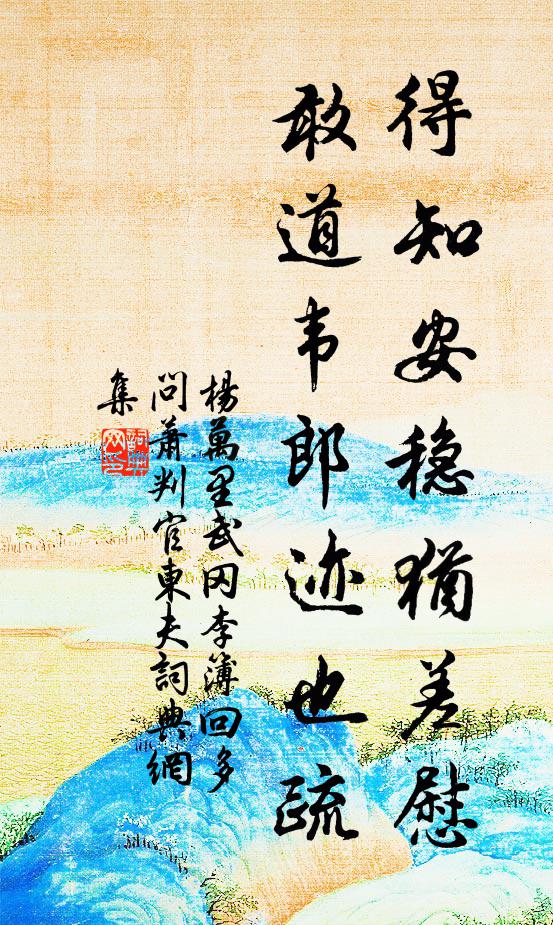 得知安稳犹差慰
敢道韦郎迹也疏
楊萬里武冈李簿回多
问萧判官東夫詞典網
集